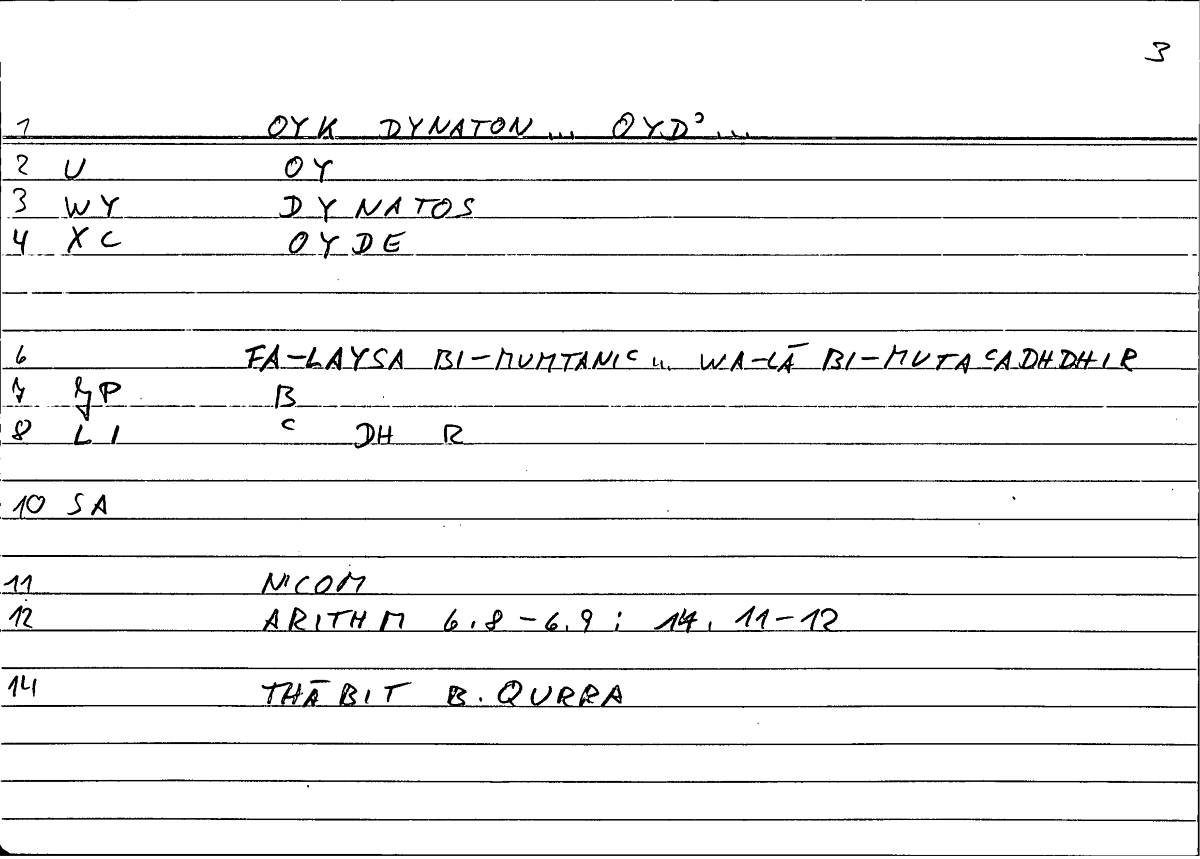 3
1 OYK DYNATON ... OYD' ...
2 U OY
3 WY DYNATOS
4 XC OYDE
6 FA-LAYSA BI-MUMTANIᶜ ... WA-LĀ BI-MUTAᶜADHDHIR
7 P B
8 LI ᶜ DH R
10 SA
11 NICOM
12 ARITHM 6.8-6.9; 14.11-12
14 THĀBIT B. QURRA